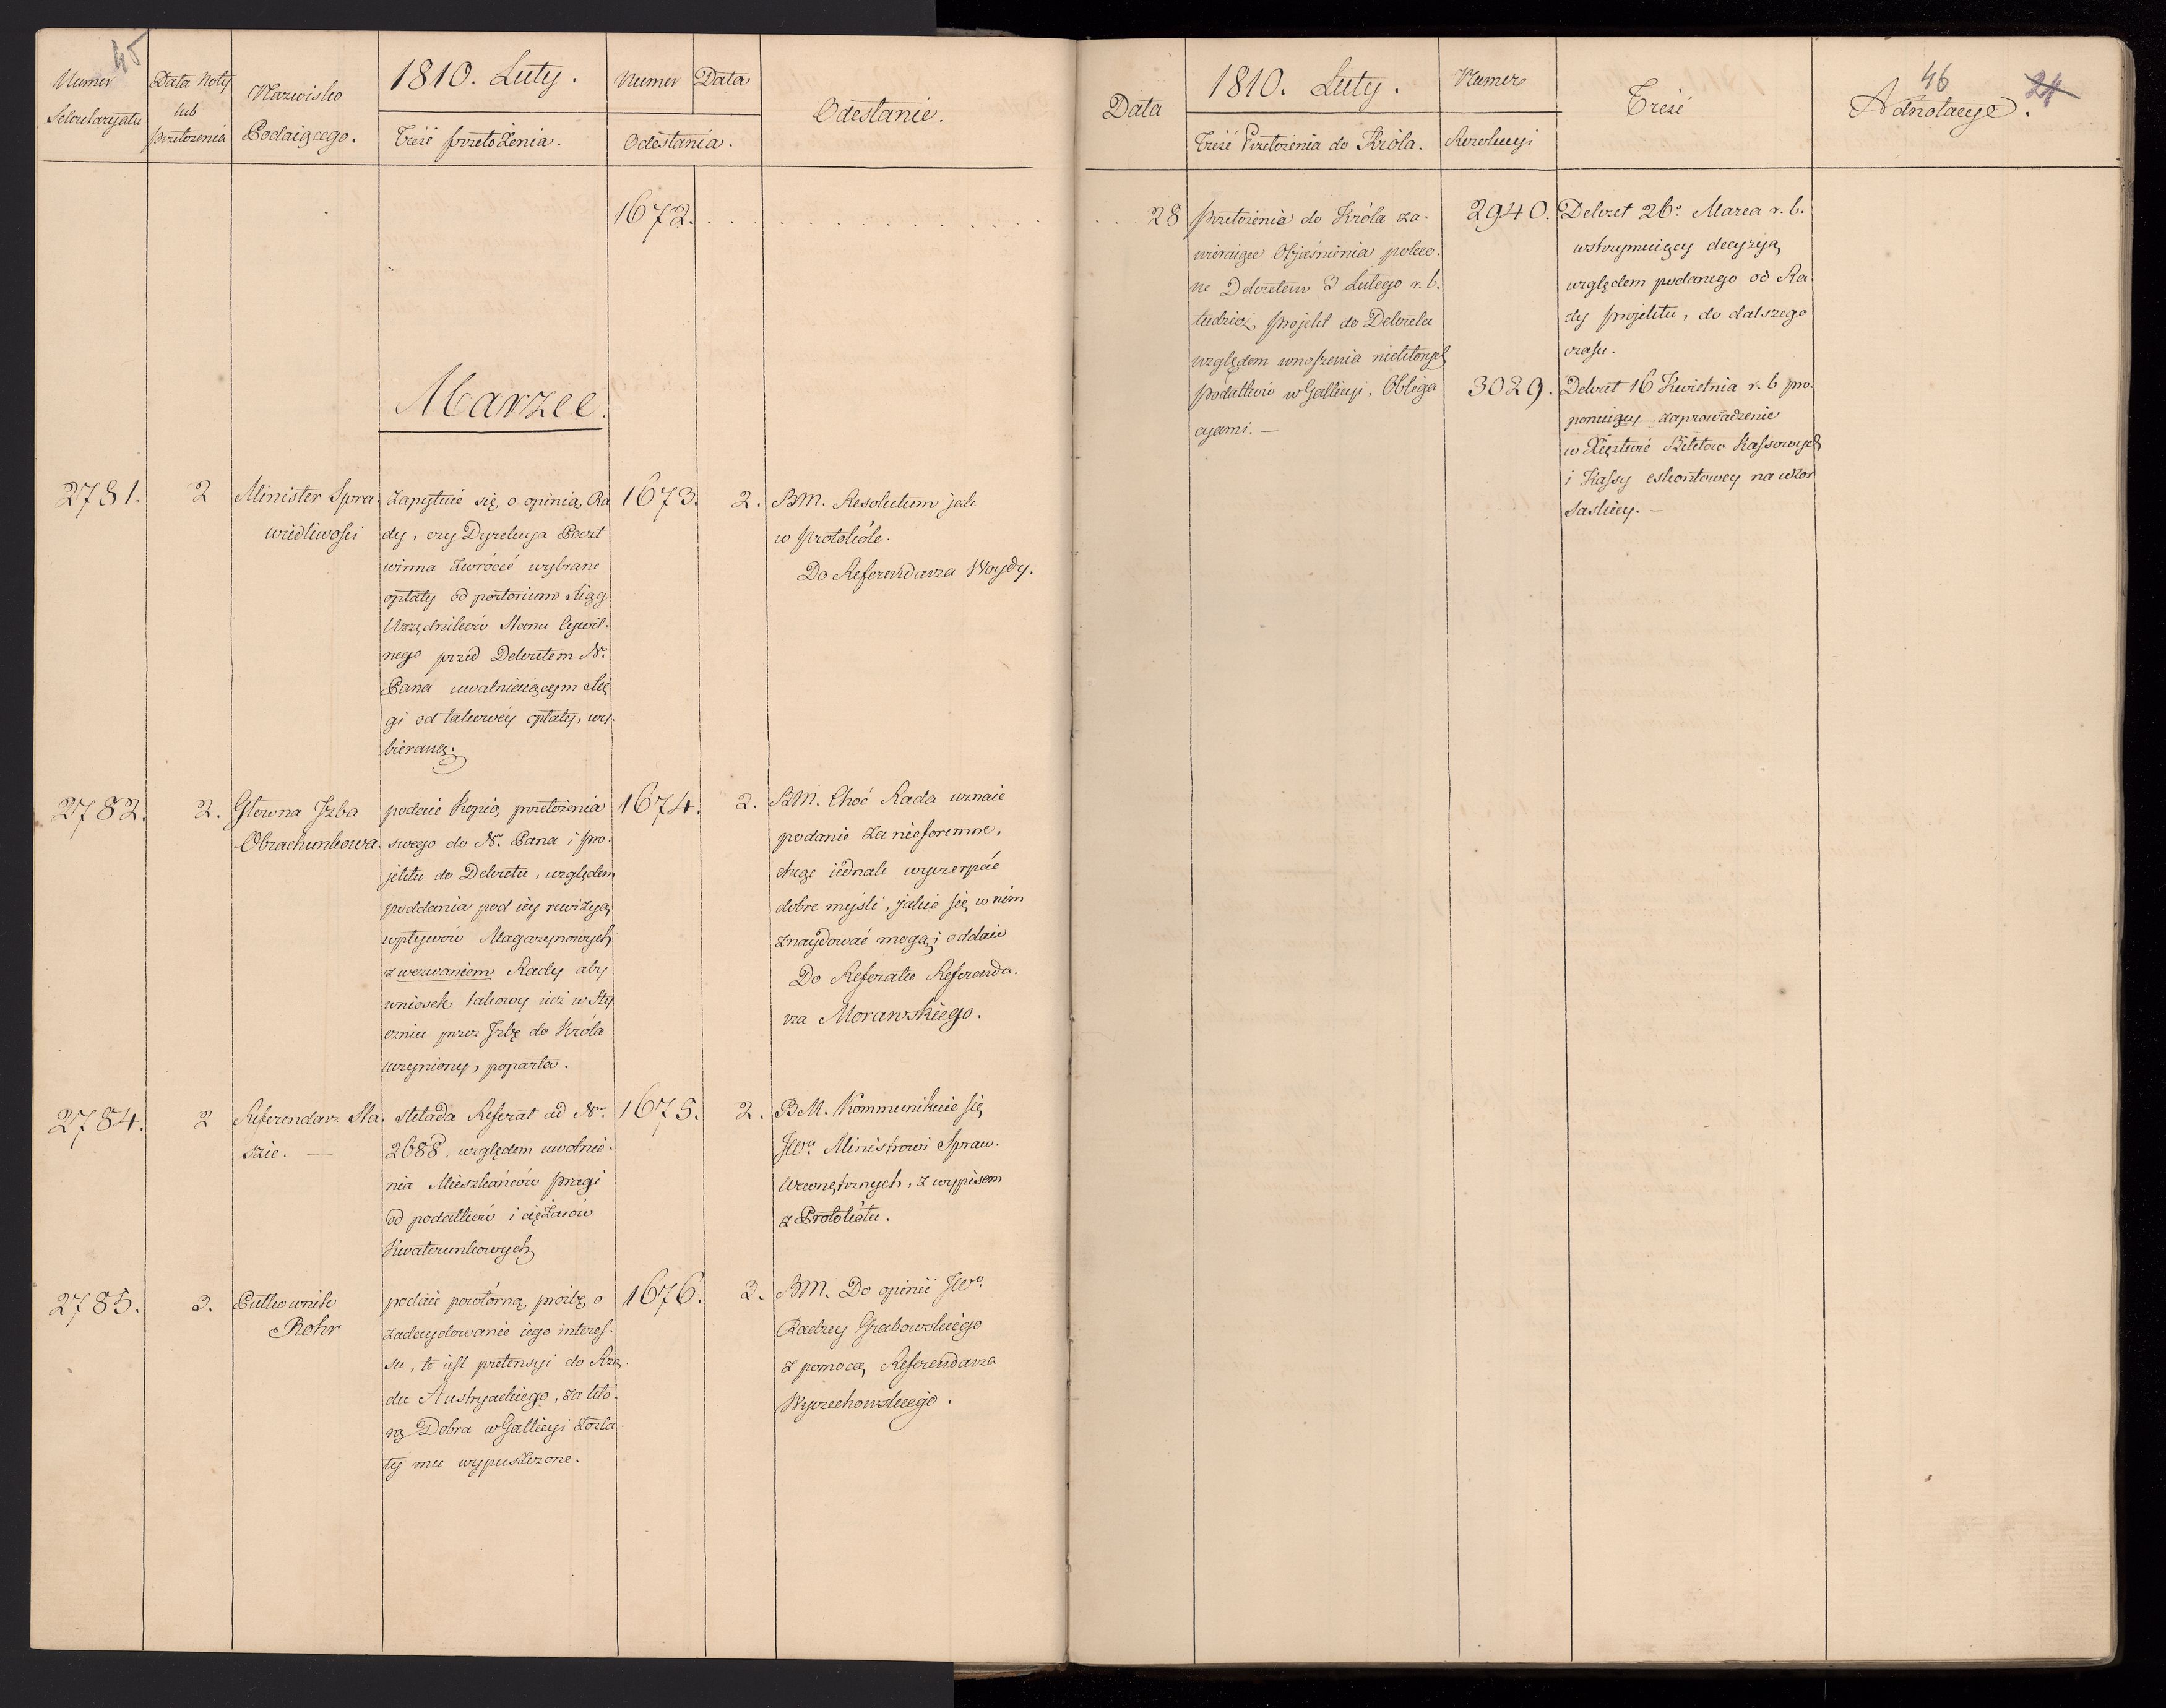 45
Numer
Sekretaryatu
Data Noty
lub
przełożenia
Nazwisko
Podaiącego.
1810. Luty.
Treść przełożenia.
Numer Data
Odesłania.
Odesłanie.
1672. . . . . . . . . . . . .
Marzec.
2781. 2 Minister Spra-
wiedliwości
zapytuie się, o opinią Ra
dy, czy Dyrekcya Poczt
winna zwrócić wybrane
opłaty od portorium Xiąg
Urzędników Stanu Cywil-
nego przed Dekretem N.
Pana uwalniaiącym Xię
gi od takowéy opłaty, wy-
bieraną.
1673. 2. BM. Resolutum jak
w protokóle.
Do Referendarza Woydy.
2782. 2. Głowna Jzba
Obrachunkowa.
podaie kopią przełożenia
swego do N. Pana i pro-
jektu do Dekretu, względem
poddania pod iéy rewizyą
wpływów Magazynowych
z wezwaniem Rady aby
wniosek takowy iuż w Sty
czniu przez Jzbę do Króla
uczyniony, poparła.
1674. 2. BM. Choć Rada uznaie
podanie za nieforemne,
chcąc iednak wyczerpać
dobre myśli, jakie się w nim
znaydować mogą, i oddaie
Do Referatu Referenda-
rza Morawskiego.
2784. 2 Referendarz Sta-
szic. —
składa Referat ad Nr.
2688. względem uwolnie-
nia Mieszkańców pragi
od podatków i ciężarów
Kwaterunkowych
1675. 2. BM. Kommunikuie się
JWu. Ministrowi Spraw.
Wewnętrznych, z wypisem
z Protokółu.
2785. 3. Pułkownik
Rohr
podaie powtórną prośbę, o
zadecydowanie iego interes-
su, to iest pretensyi do Rzą-
du Austryackiego, za któ-
rą Dobra w Gallicyi zosta-
ły mu wypuszczone.
1676. 3. BM. Do opinii JWo.
Radzcy Grabowskiego
z pomocą Referendarza
Wyczechowskiego.
46
24
Data
1810. Luty.
Treść Przełożenia do Króla.
Numer
Rezolucyi
Treść
Adnotacye.
. . . 28 przełożenia do Króla za-
wieraiące Objaśnienia poleco-
ne Dekretem 3 Lutego r. b.
tudzież projekt do Dekretu
względem wnoszenia niektórych
podatków w Gallicyi, Obliga
cyami. —
2940. Dekret 26o Marca r. b.
wstrzymuiący decyzyą
względem podanego od Ra-
dy projektu, do dalszego
czasu.
3029. Dekret 16 Kwietnia r. b pro-
ponuiący zaprowadzenie
w Xięstwie Biletów Kassowych
i Kassy eskontowey na wzór
Saskiey. —